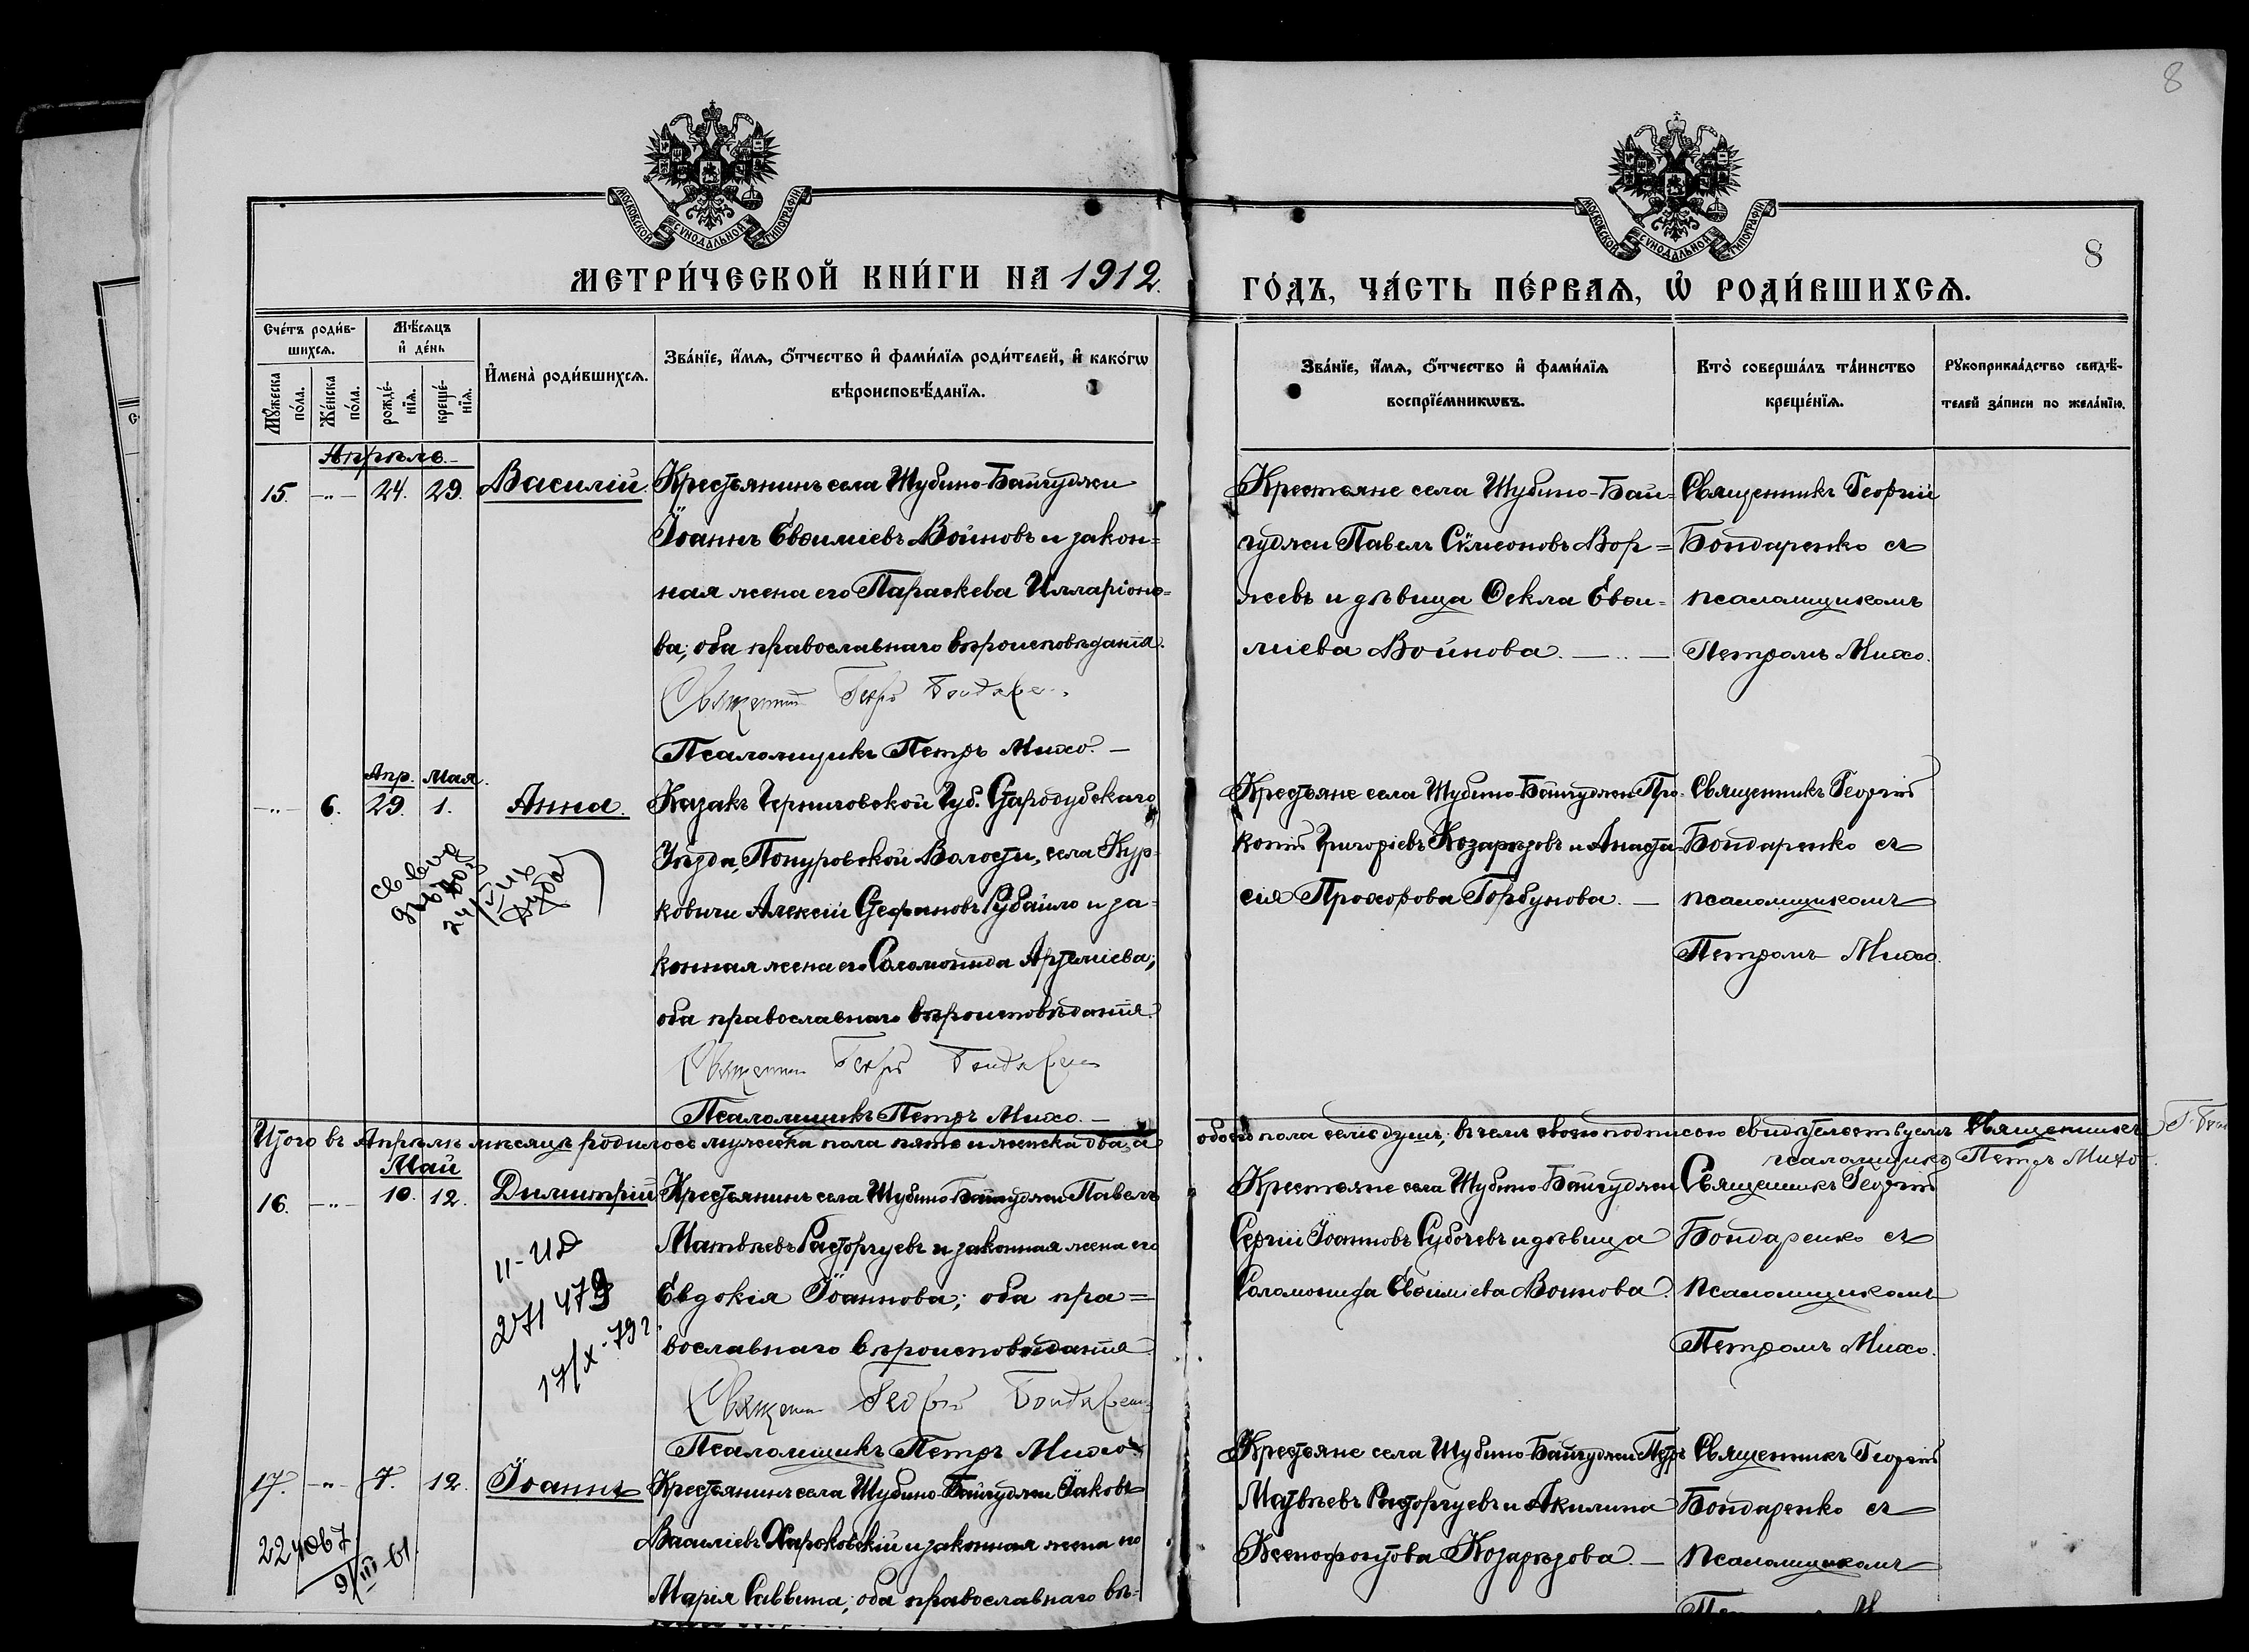 8
МОСКОВСКОЙ СѴНОДАЛЬНОЙ ТИПОГРАФІИ
МОСКОВСКОЙ СѴНОДАЛЬНОЙ ТИПОГРАФІИ
8
МЕТРИ́ЧЕСКОЙ КНИ́ГИ НА 1912.
ГО́ДЪ, ЧА́СТЬ ПЕ́РВАѦ, Ѡ҆ РОДИ́ВШИХСѦ.
Сче́тъ роди́в-
шихсѧ.
Мѣ́сѧцъ
и҆ де́нь
Мꙋ́жеска
по́ла.
Же́нска
по́ла.
рожде́-
нїѧ.
креще́-
нїѧ.
И҆мена̀ роди́вшихсѧ.
Зва́нїе, и҆́мѧ, ѻ҆́тчество и҆ фами́лїѧ роди́телей, и҆ како́гѡ
вѣроисповѣ́данїѧ.
Зва́нїе, и҆́мѧ, ѻ҆́тчество и҆ фами́лїѧ
воспрїе́мникѡвъ.
Кто̀ соверша́лъ та́инство
креще́нїѧ.
Рꙋкоприкла́дство свидѣ́-
телей за́писи по жела́нїю.
Апрѣль.
15. -"- 24. 29. Василій.
Крестьянинъ села Шубино-Байгуджи
Іоаннъ Евѳиміевъ Войновъ и закон=
ная жена его Параскева Илларіоно-
ва; оба православнаго вѣроисповѣданія.
Священник Георгій Бондаренко
Псаломщикъ Петръ Михо. —
Крестьяне села Шубино-Бай=
гуджи Павелъ Сѵмеоновъ Вор=
жевъ и дѣвица Ѳекла Евѳи=
міева Войнова. — .. —
Священникъ Георгій
Бондаренко съ
псаломщикомъ
Петромъ Михо.
Апр. Мая.
-"- 6. 29. 1. Анна.
24/
Казакъ Черниговской Губ. Стародубскаго
Уѣзда, Понуровской Волости, села Кур-
ковичи Алексій Стефановъ Рубайло и за-
конная жена его Соломонида Артеміева;
оба православнаго вѣроисповѣданія.
Священник Георгій Бондаренко
Псаломщикъ Петръ Михо. —
Крестьяне села Шубино-Байгуджи Про-
копій Григоріевъ Козарѣзовъ и Анаста-
сія Прохорова Горбунова. —
Священникъ Георгій
Бондаренко съ
псаломщикомъ
Петромъ Михо.
Итого въ Апрѣлѣ мѣсяцѣ родилось мужеска пола пять и женска два, а
обоего пола семь душъ; въ чемъ своею подписью свидѣтельствуемъ Священникъ
псаломщикъ Петръ Михо.
Май
16. -"- 10. 12. Димитрій
II-ИЯ
271479
17/X-79г.
Крестьянинъ села Шубино-Байгуджи Павелъ
Матвѣевъ Расторгуевъ и законная жена его
Евдокія Іоаннова; оба пра=
вославнаго вѣроисповѣданія.
Священник Георгій Бондаренко
Псаломщикъ Петръ Михо.
Крестьяне села Шубино-Байгуджи
Сергій Іоанновъ Субочевъ и дѣвица
Соломонида Евѳиміева Войнова.
Священникъ Георгій
Бондаренко съ
псаломщикомъ
Петромъ Михо.
17. -"- 7. 12. Іоаннъ
224067
9/III-61.
Крестьянинъ села Шубино-Байгуджи Іаковъ
Василіевъ и законная жена его
Марія Саввина; оба православнаго вѣ-
Крестьяне села Шубино-Байгуджи Петръ
Матвѣевъ Расторгуевъ и Акилина
Ксенофонтова Козарѣзова. —
Священникъ Георгій
Бондаренко съ
псаломщикомъ